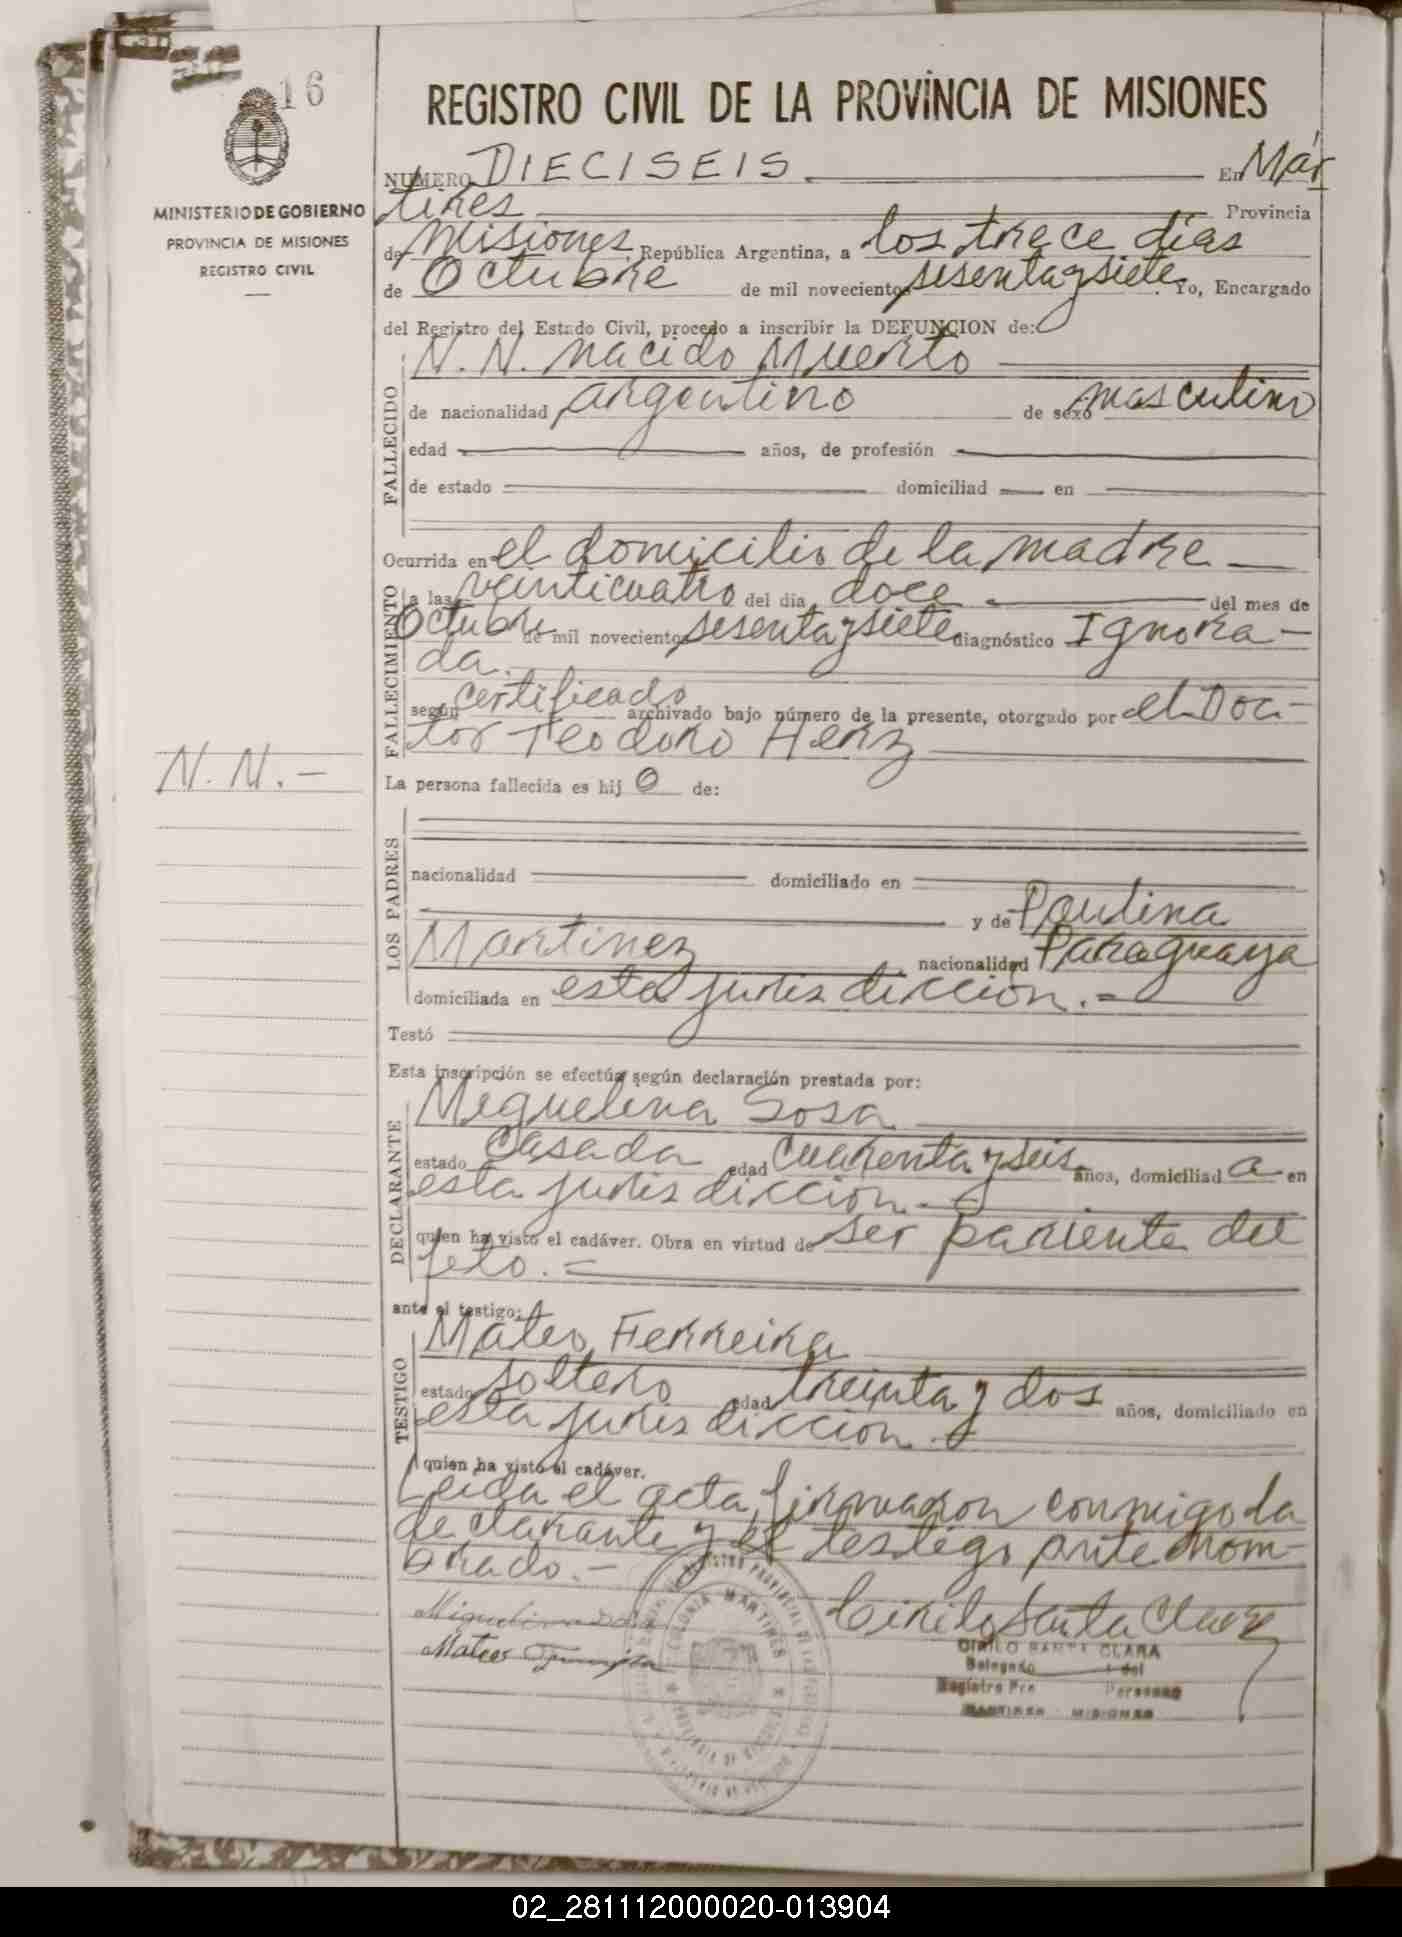 16
MINISTERIO DE GOBIERNO
PROVINCIA DE MISIONES
REGISTRO CIVIL
N. N. –
REGISTRO CIVIL DE LA PROVINCIA DE MISIONES
NUMERO DIECISEIS. En Már
tires Provincia
de Misiones, República Argentina, a los trece días
de Octubre de mil novecientos sesenta y siete. Yo, Encargado
del Registro del Estado Civil, procedo a inscribir la DEFUNCION de:
FALLECIDO
N. N. nacido muerto
de nacionalidad argentino de sexo masculino
edad años, de profesión
de estado domiciliad en
Ocurrida en el domicilio de la madre
FALLECIMIENTO
a las veinticuatro del día doce del mes de
Octubre de mil novecientos sesenta y siete diagnóstico Ignora–
da.
según certificado archivado bajo número de la presente, otorgado por el Doc–
tor Teodoro Henz
La persona fallecida es hij o de:
LOS PADRES
nacionalidad domiciliado en
y de Paulina
Martinez nacionalidad Paraguaya
domiciliada en esta jurisdiccion. –
Testó
Esta inscripción se efectúa según declaración prestada por:
DECLARANTE
Miguelina Sosa
estado casada edad cuarenta y seis años, domiciliad a en
esta jurisdiccion.
quien ha visto el cadáver. Obra en virtud de ser pariente del
feto. =
ante el testigo:
TESTIGO
Mateo Ferreira
estado soltero edad treinta y dos años, domiciliado en
esta jurisdiccion.
quien ha visto el cadáver.
Leida el acta, firmaron conmigo la
declarante y el testigo ante nom–
brado. –
Miguelina Sosa
Mateo
Cirilo Santa Clara
CIRILO SANTA CLARA
Delegado del
Registro Pro Personas
MARTIRES - MISIONES
COLONIA MARTIRES
02_281112000020-013904